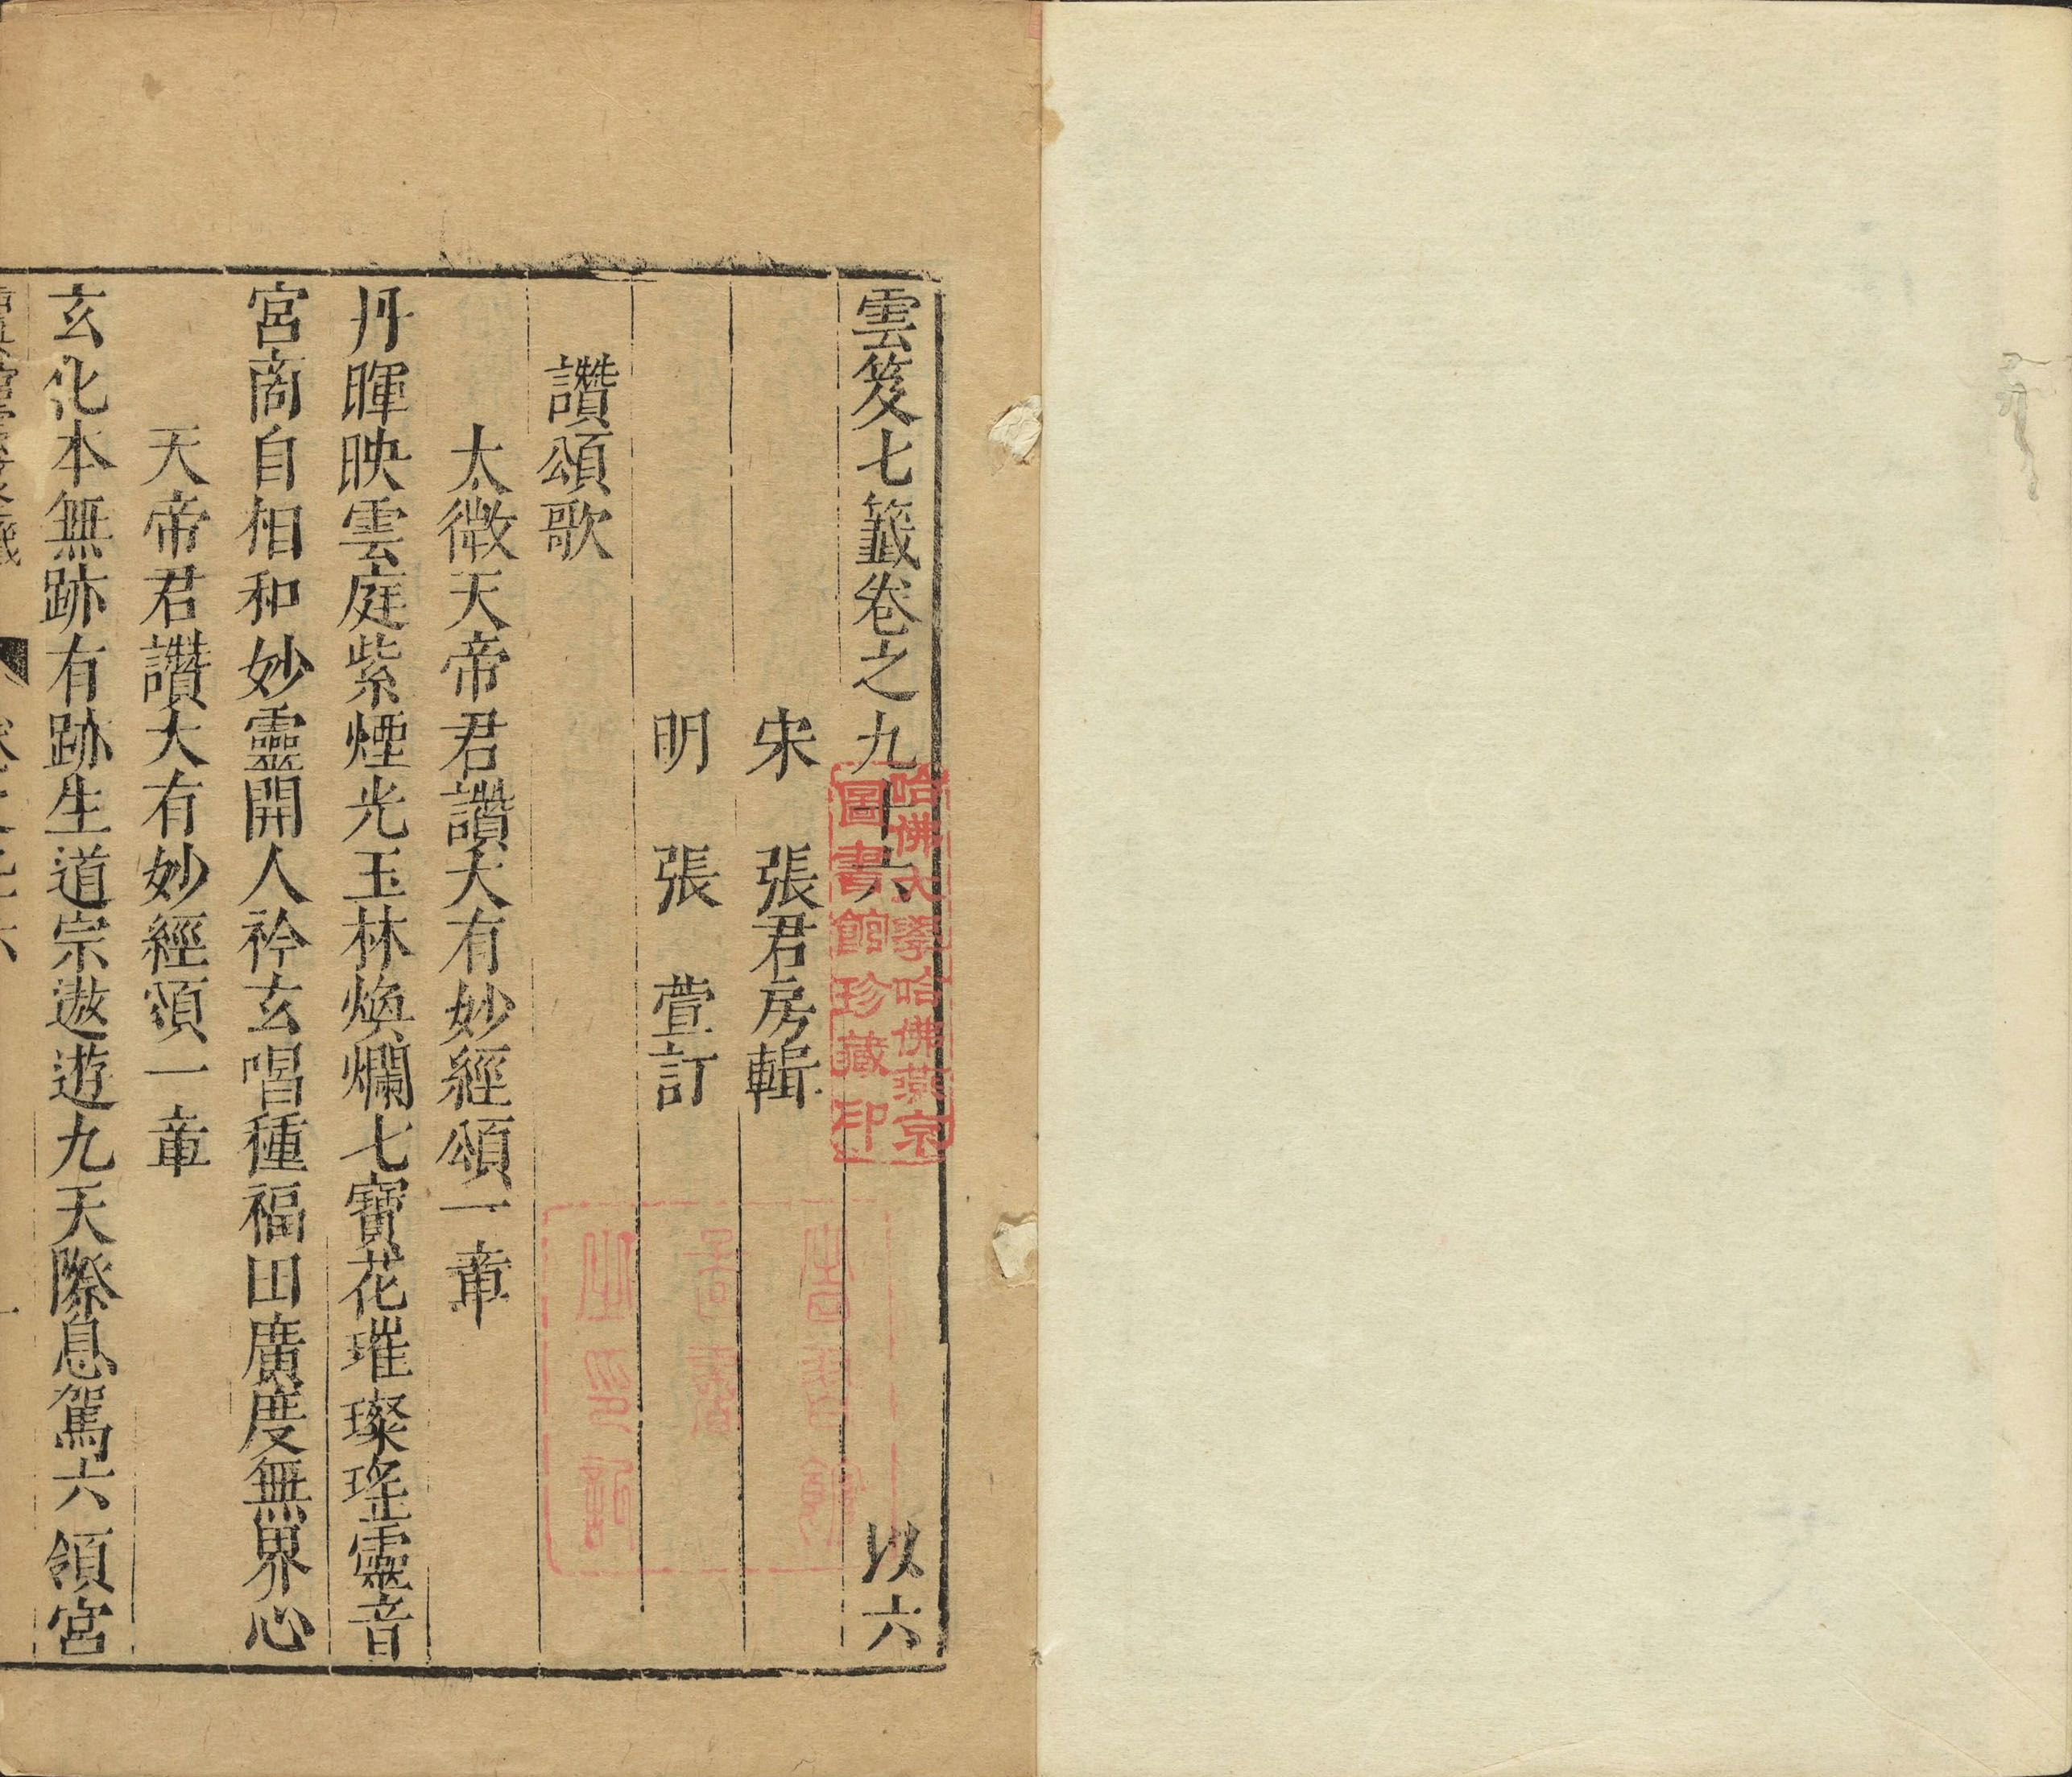 雲笈七籤卷之九十六　以六
宋　張君房輯
明　張　萱訂
讚頌歌
太微天帝君讚大有妙經頌一章
丹暉映雲庭紫煙光玉林煥爛七寶花璀璨瑤靈音
宮商自相和妙靈開人衿玄唱種福田廣度無界心
天帝君讚大有妙經頌一章
玄化本無跡有跡生道宗遨遊九天際息駕六領宮
哈佛大學哈佛燕京
圖書館珍藏印